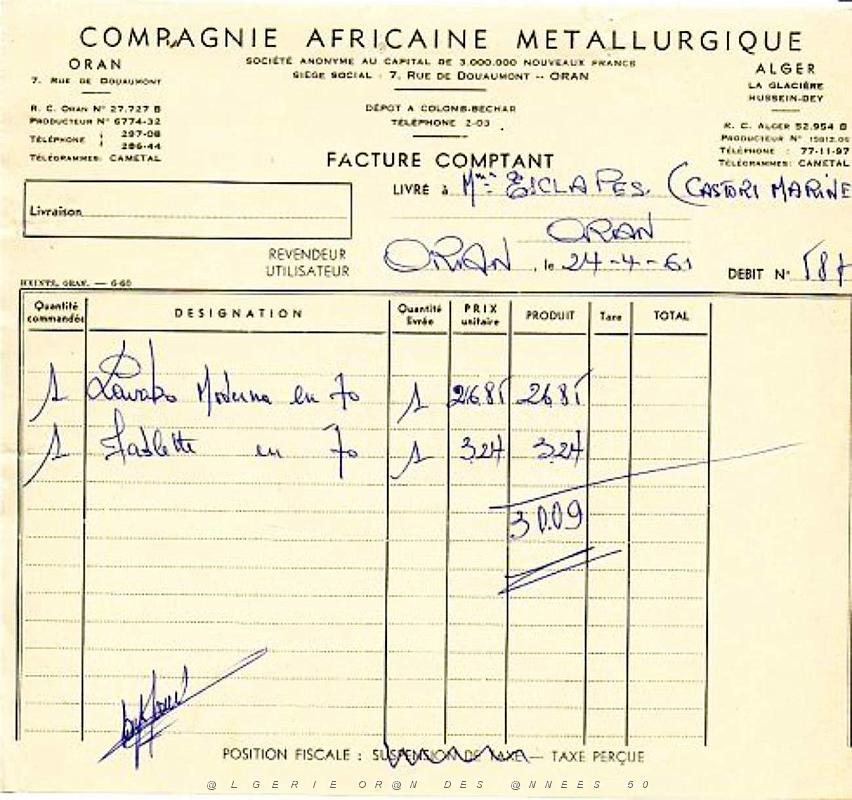 COMPAGNIE AFRICAINE METALLURGIQUE
SOCIÉTÉ ANONYME AU CAPITAL DE 3.000.000 NOUVEAUX FRANCS
SIÈGE SOCIAL : 7, RUE DE DOUAUMONT -- ORAN
ORAN
7. RUE DE DOUAUMONT
R. C. ORAN N° 27.727 B
PRODUCTEUR N° 6774-32
TÉLÉPHONE : 297-08
286-44
TÉLÉGRAMMES: CAMETAL
DÉPOT A COLOMB-BECHAR
TÉLÉPHONE 2-03
ALGER
LA GLACIÈRE
HUSSEIN-DEY
R. C. ALGER 52.954 B
PRODUCTEUR N°
TÉLÉPHONE : 77-11-97
TÉLÉGRAMMES: CAMETAL
FACTURE COMPTANT
LIVRÉ à Mme ESCLAPES. (CASTORI MARINE
ORAN
Livraison
REVENDEUR
UTILISATEUR
ORAN, le 24-4-61
DEBIT N°
ORAN. — 6-60
Quantité commandée DESIGNATION Quantité livrée PRIX unitaire PRODUIT Taxe TOTAL
1 Lavabo Moderna en 70 1 26.85 26.85
1 Tablette en 70 1 3.24 3.24
30.09
POSITION FISCALE : SUSPENSION DE TAXE — TAXE PERÇUE
@LGERIE OR@N DES @NNEES 50